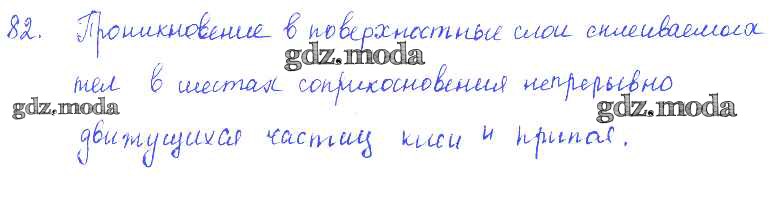 82. Проникновение в поверхностные слои склеиваемых
gdz.moda
тел в местах соприкосновения непрерывно
gdz.moda gdz.moda
движущихся частиц клея и припоя.